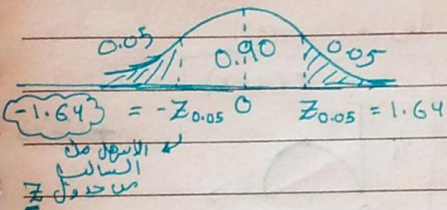 0.05 0.90 0.05
-1.64 = -Z0.05 0 Z0.05 = 1.64
الأسهل من
السالب
من جدول Z